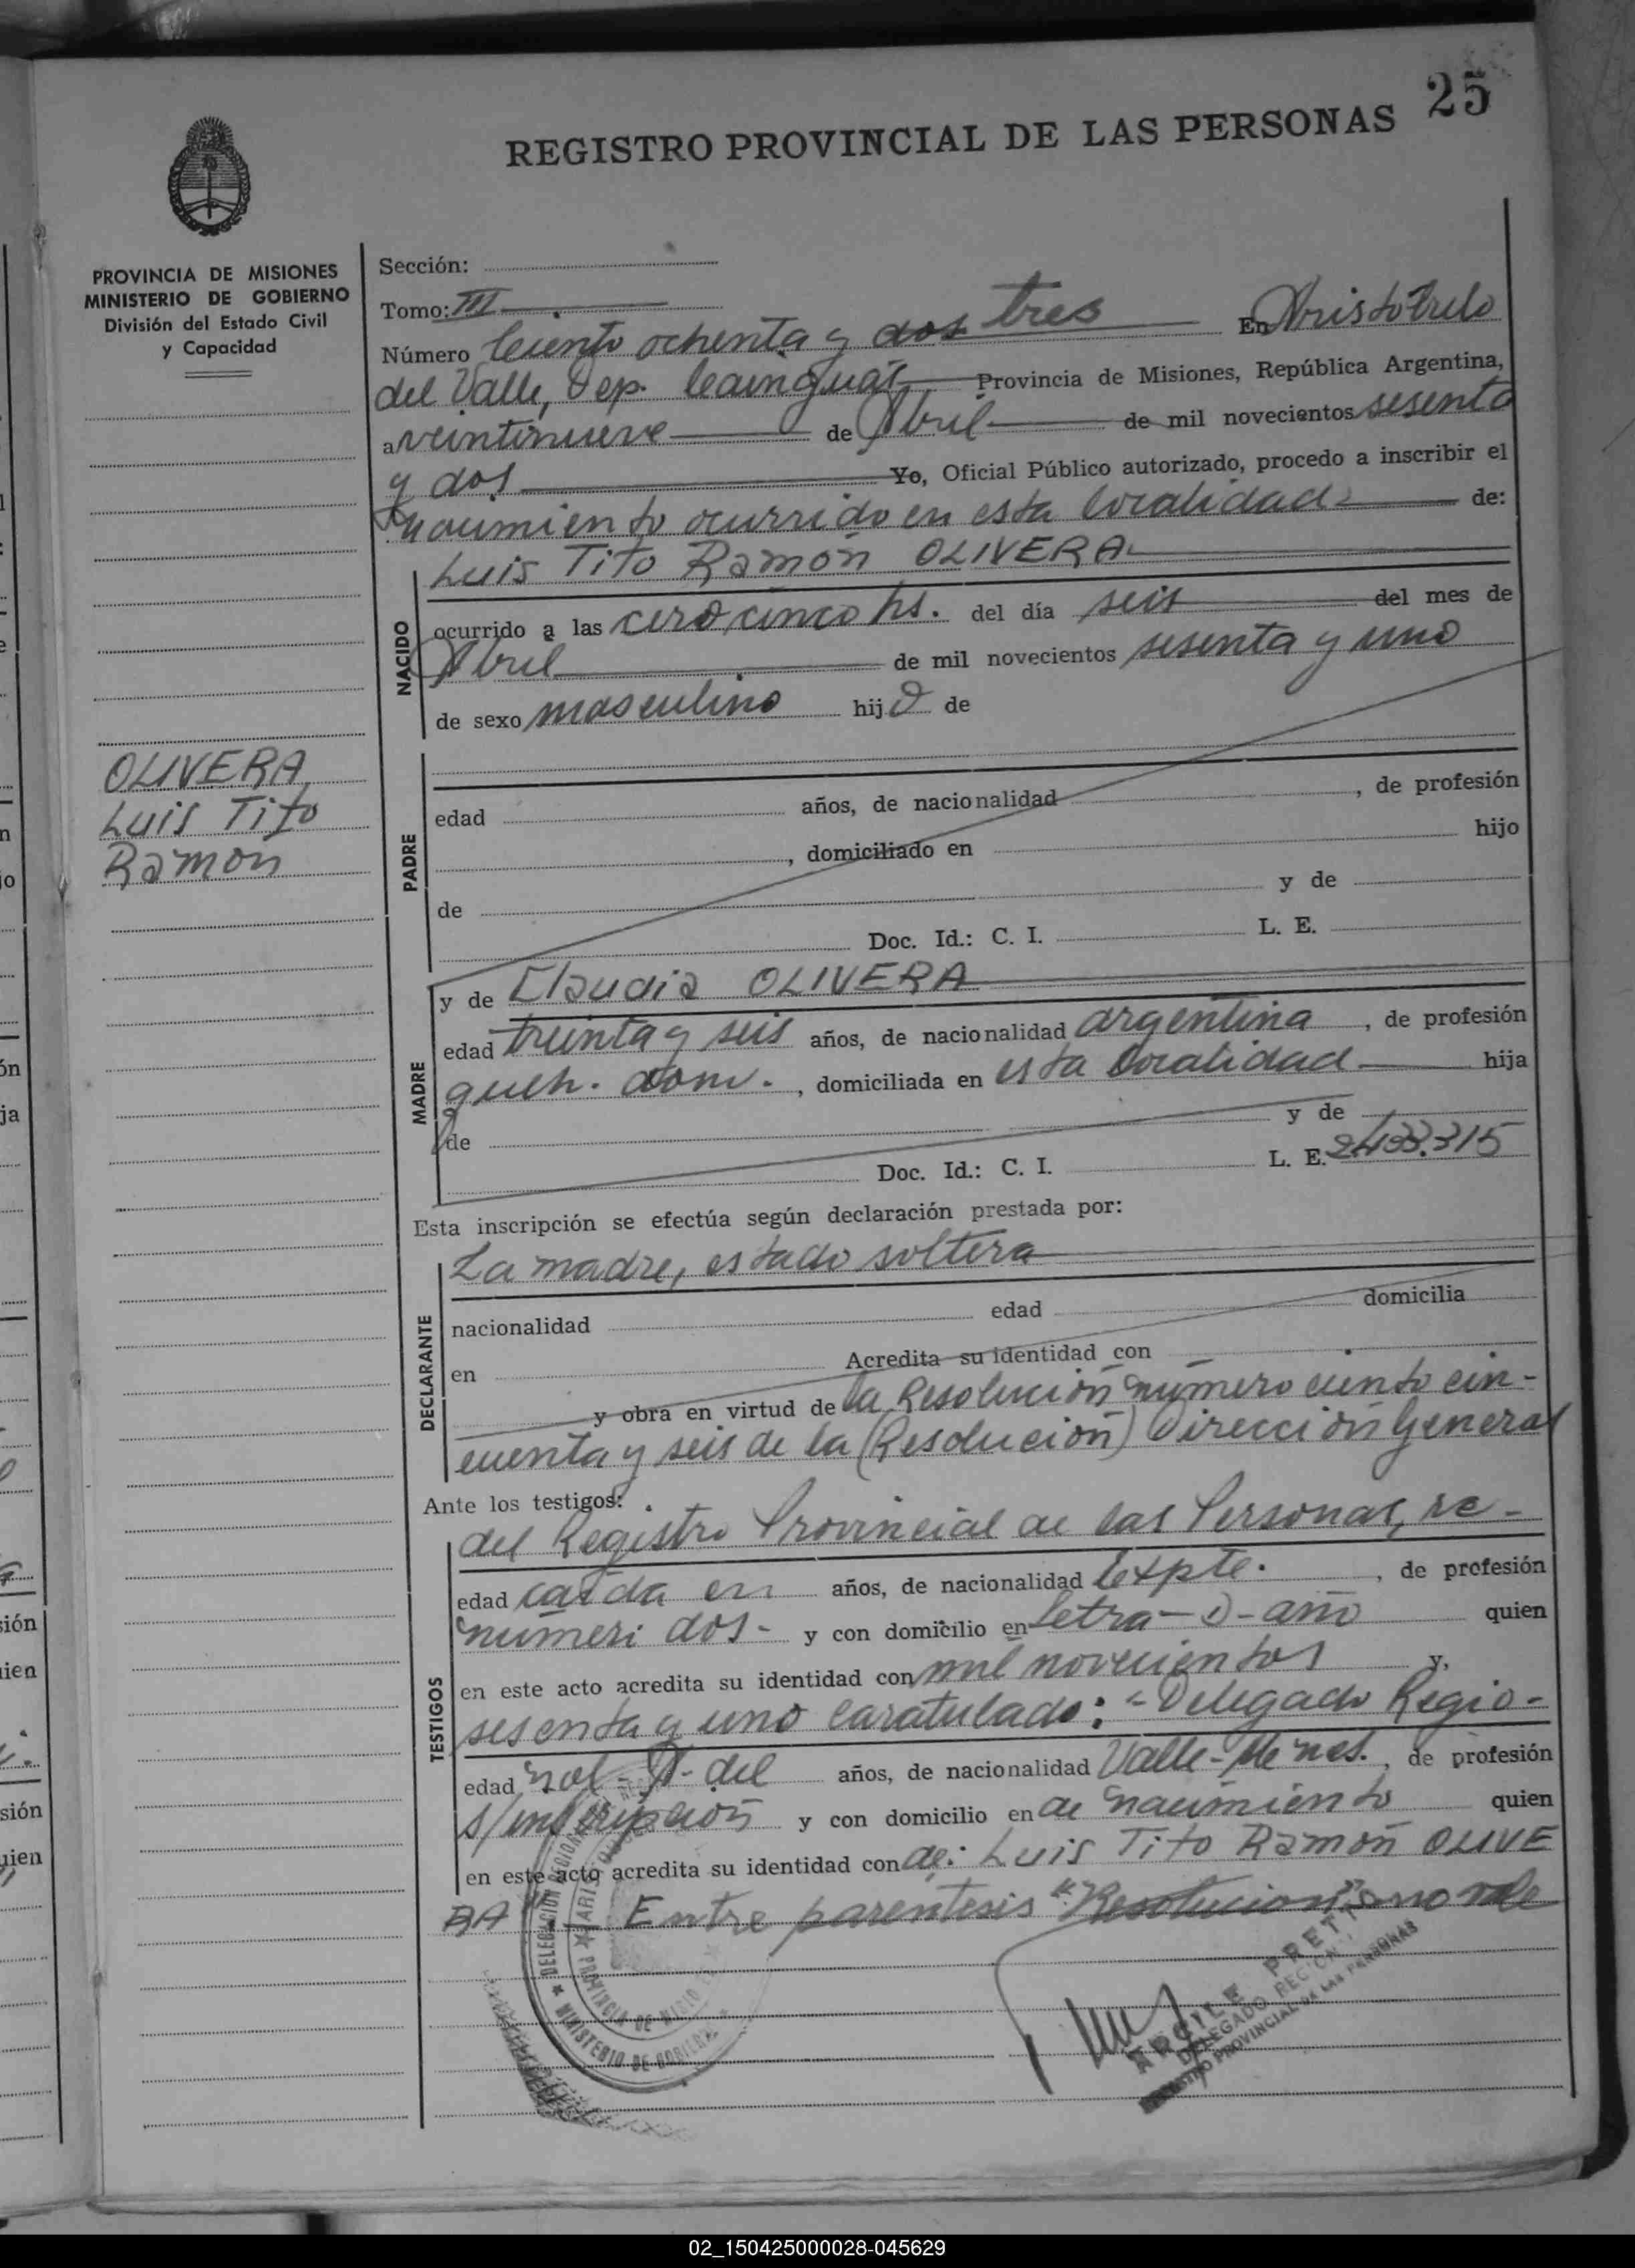 25
REGISTRO PROVINCIAL DE LAS PERSONAS
PROVINCIA DE MISIONES
MINISTERIO DE GOBIERNO
División del Estado Civil
y Capacidad
OLIVERA
Luis Tito
Ramon
Sección:
Tomo: III
Número Ciento ochenta y dos tres En Aristobulo
del Valle, Dep. Cainguás Provincia de Misiones, República Argentina,
a veintinueve de Abril de mil novecientos sesenta
y dos Yo, Oficial Público autorizado, procedo a inscribir el
nacimiento ocurrido en esta localidad de:
Luis Tito Ramón OLIVERA
NACIDO
ocurrido a las cero cinco hs. del día seis del mes de
Abril de mil novecientos sesenta y uno
de sexo masculino hijo de
PADRE
edad años, de nacionalidad , de profesión
, domiciliado en hijo
de y de
Doc. Id.: C. I. L. E.
MADRE
y de Claudia OLIVERA
edad treinta y seis años, de nacionalidad argentina , de profesión
queh. dom. , domiciliada en esta localidad hija
de y de
Doc. Id.: C. I. L. E. 2433.315
Esta inscripción se efectúa según declaración prestada por:
DECLARANTE
La madre, estado soltera
nacionalidad edad domicilia
en Acredita su identidad con
y obra en virtud de la Resolución número ciento cin-
cuenta y seis de la (Resolución) Dirección General
Ante los testigos:
TESTIGOS
del Registro Provincial de las Personas, re-
edad caída en años, de nacionalidad Expte. , de profesión
número dos- y con domicilio en Letra-D-año quien
en este acto acredita su identidad con mil novecientos y,
sesenta y uno caratulado: "Delegado Regio-
edad nal-A-del años, de nacionalidad Valle- , de profesión
s/inscripción y con domicilio en de nacimiento quien
en este acto acredita su identidad con de: Luis Tito Ramón OLIVE
RA" Entre parentesis "Resolucion" no vale
DELEGACION REGIONAL
MINISTERIO DE GOBIERNO
PROVINCIA DE MISIONES
PRETTI
DELEGADO REGIONAL
REGISTRO PROVINCIAL DE LAS PERSONAS
02_150425000028-045629